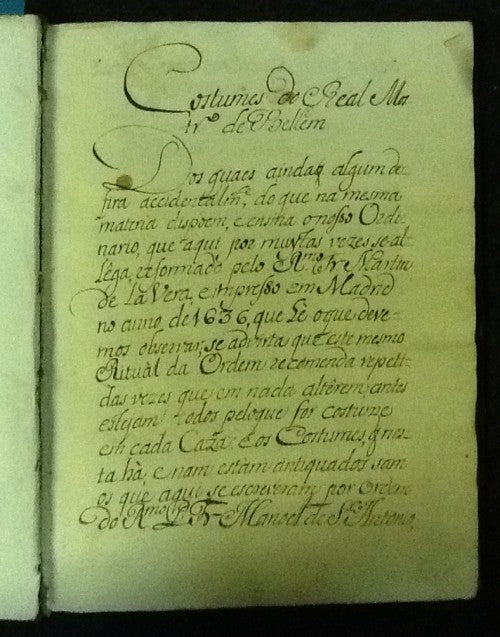 Costumes do Real Mo
trº. de Bellem
Dos quaes aindaq̃ algum de-
fira accidentalmᵗᵉ, do que na mesma
materia dispoem, e ensina o nosso Ordi-
nario, que aqui por muytas vezes se al-
lega, reformado pelo Rᵐᵒ Fr Martin
de La Vera, e impresso em Madrid
no anno de 1636, que he oque deve-
mos observar, se advirta que este mesmo
Ritual da Ordem recomenda repeti-
das vezes que em nada alterem, antes
estejam todos peloque for costume
em cada Caza: E os Costumes, q̃ nes-
ta hà, e nam estam antiquados sam
os que aqui se escreveram por Ordem
do Rᵐᵒ P. Fr Manoel de Sᵗᵒ Antonio,